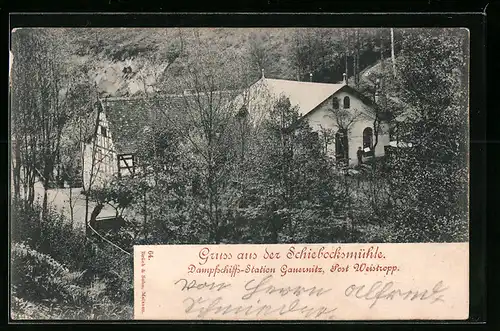 Gruss aus der Schiebocksmühle.
Dampfschiffs-Station Gauernitz, Post Weistropp.
von Herrn Alfred
Schmiedchen
64. Brück & Sohn, Meissen.